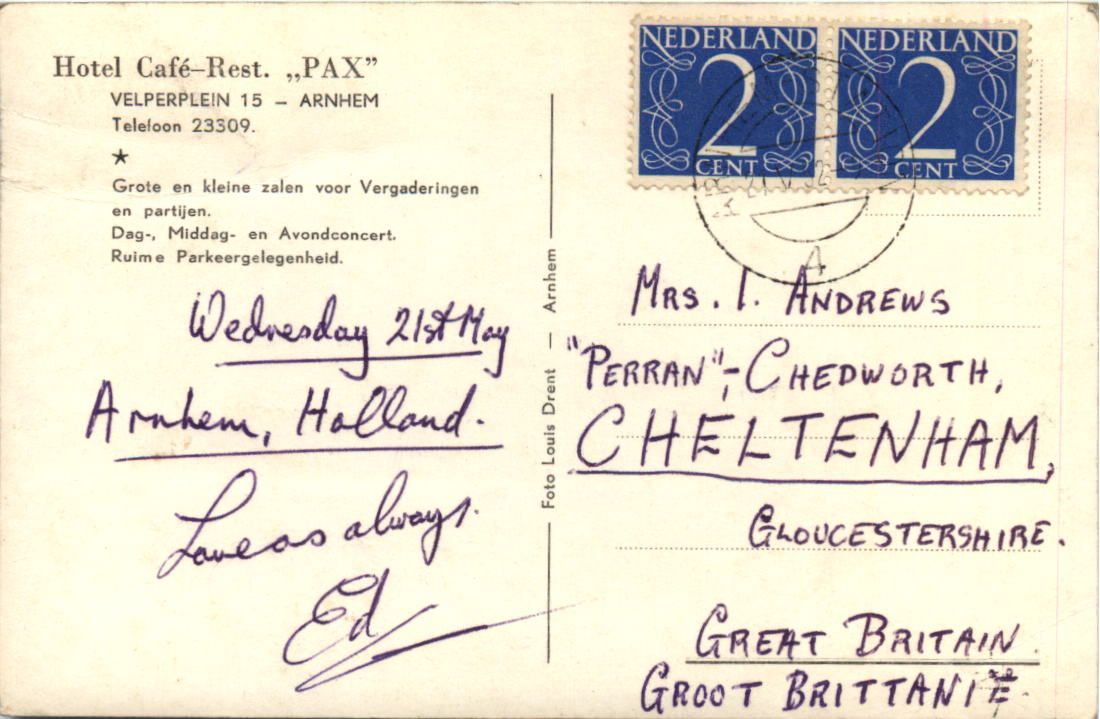 Hotel Café-Rest. „PAX”
VELPERPLEIN 15 - ARNHEM
Telefoon 23309.
Grote en kleine zalen voor Vergaderingen
en partijen.
Dag-, Middag- en Avondconcert.
Ruime Parkeergelegenheid.
Wednesday 21st May
Arnhem, Holland.
Love as always.
Ed
Foto Louis Drent — Arnhem
NEDERLAND
2
CENT
NEDERLAND
2
CENT
A
MRS. I. ANDREWS
"PERRAN",- CHEDWORTH,
CHELTENHAM,
GLOUCESTERSHIRE.
GREAT BRITAIN.
GROOT BRITTANIE.